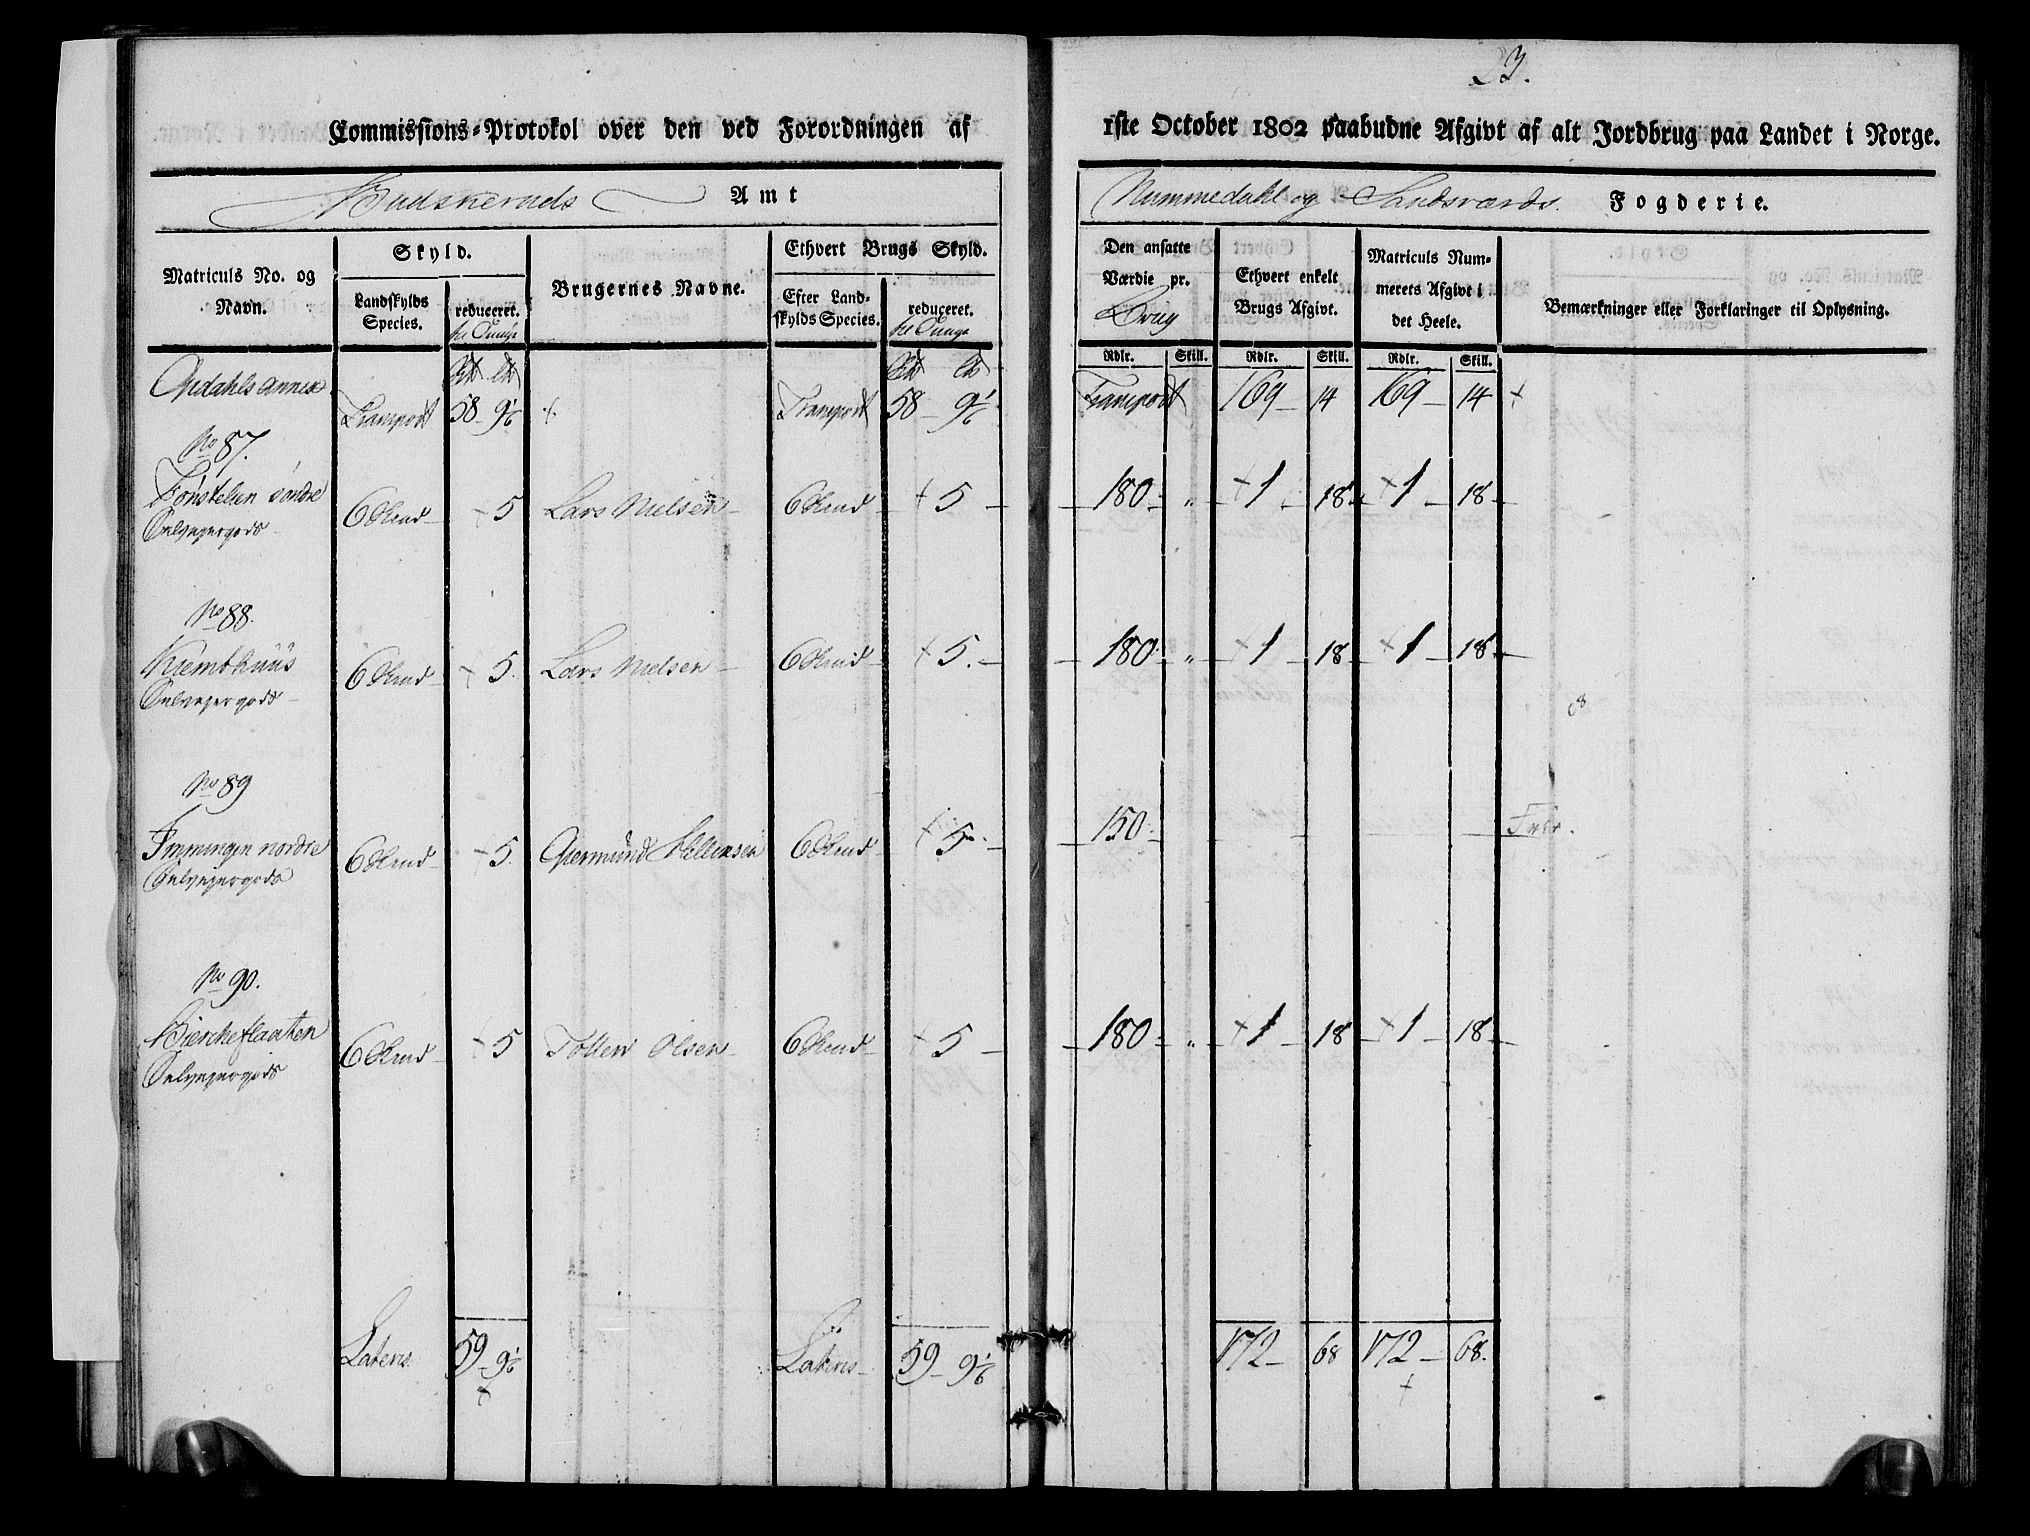 23.
Commissions-Protokol over den ved Forordningen af 1ste October 1802 paabudne Afgivt af alt Jordbrug paa Landet i Norge.
Budskeruds Amt
Nummedahl og Sandsværds Fogderie.
Matriculs No. og Navn.
Skyld.
Landskylds Species.
reduceret.
Brugernes Navne.
Ethvert Brugs Skyld.
Efter Landskylds Species.
reduceret.
Den ansatte Værdie pr. Brug
Ethvert enkelt Brugs Afgivt.
Matriculs Nummerets Afgivt i det Heele.
Bemærkninger eller Forklaringer til Oplysning.
Rdlr. Skill. Rdlr. Skill. Rdlr. Skill.
Opdahls annex
Transport 58 - 9½ Transport 58 - 9½ Transport 169 - 14 169 - 14
No 87.
Tønstelien søndre
Selvejergods
6 Skind - 5 Lars Nielsen - 6 Skind - 5 - 180 - " - 1 - 18 - 1 - 18 -
No 88.
Kiembhuus
Selvejergods -
6 Skind - 5. Lars Nielsen - 6 Skind - 5. - 180 - " - 1 - 18 - 1 - 18 -
No 89
nordre
Selvejergods
6 Skind - 5. Giermund 6 Skind - 5. - 150 - Frie.
No 90.
Bierkeflaaten
Selvejergods
6 Skind - 5 Tollew Olsen - 6 Skind - 5 - 180 - " - 1 - 18 - 1 - 18 -
Lateris 59 - 9½ Lateris - 59 - 9½ 172 - 68 172 - 68.